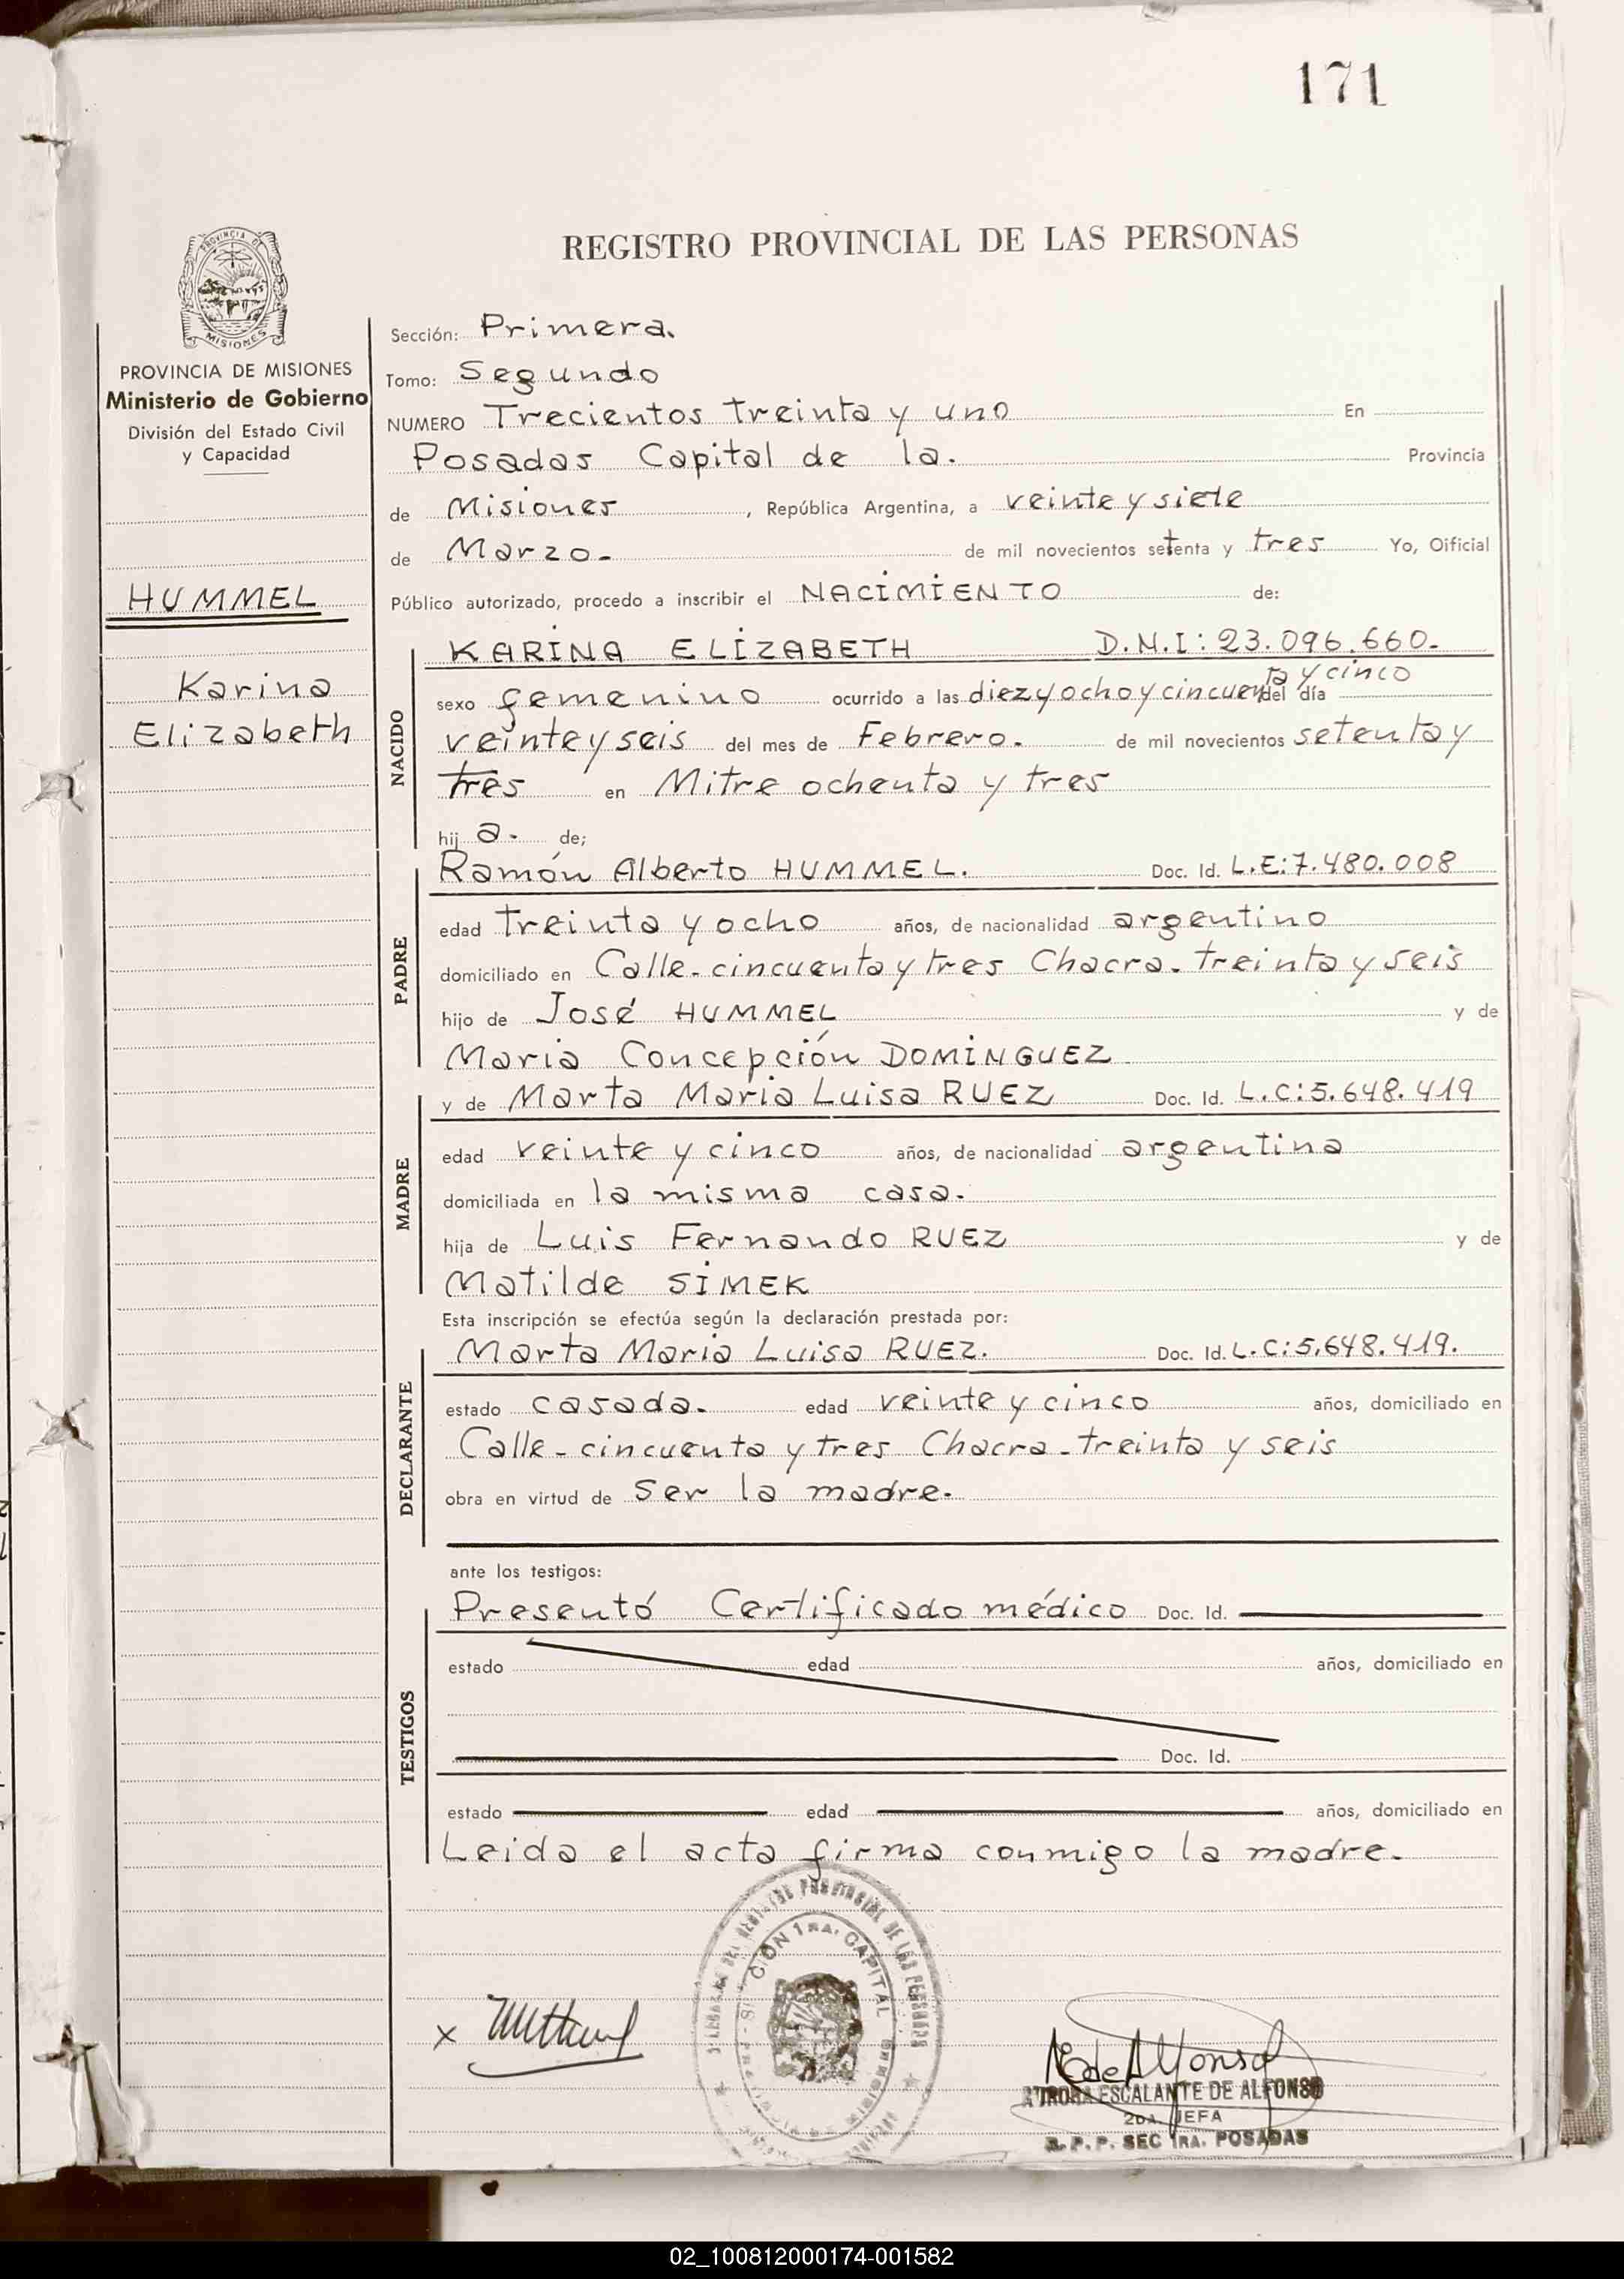 171
REGISTRO PROVINCIAL DE LAS PERSONAS
PROVINCIA DE
MISIONES
PROVINCIA DE MISIONES
Ministerio de Gobierno
División del Estado Civil
y Capacidad
HUMMEL
Karina
Elizabeth
Sección: Primera.
Tomo: Segundo
NUMERO Trecientos treinta y uno En
Posadas Capital de la. Provincia
de Misiones, República Argentina, a veinte y siete
de Marzo- de mil novecientos setenta y tres Yo, Oificial
Público autorizado, procedo a inscribir el NACIMIENTO de:
NACIDO
KARINA ELIZABETH D.N.I: 23.096.660-
sexo femenino ocurrido a las diez y ocho y cincuenta y cinco del día
veinte y seis del mes de Febrero. de mil novecientos setenta y
tres en Mitre ochenta y tres
hij a. de;
PADRE
Ramón Alberto HUMMEL. Doc. Id. L.E:7.480.008
edad treinta y ocho años, de nacionalidad argentino
domiciliado en Calle-cincuenta y tres Chacra-treinta y seis
hijo de José HUMMEL y de
Maria Concepción DOMINGUEZ
MADRE
y de Marta Maria Luisa RUEZ Doc. Id. L.C:5.648.419
edad veinte y cinco años, de nacionalidad argentina
domiciliada en la misma casa.
hija de Luis Fernando RUEZ y de
Matilde SIMEK
Esta inscripción se efectúa según la declaración prestada por:
DECLARANTE
Marta Maria Luisa RUEZ. Doc. Id. L.C:5.648.419.
estado casada. edad veinte y cinco años, domiciliado en
Calle-cincuenta y tres Chacra-treinta y seis
obra en virtud de ser la madre.
ante los testigos:
TESTIGOS
Presentó Certificado médico Doc. Id.
estado edad años, domiciliado en
Doc. Id.
estado edad años, domiciliado en
Leida el acta firma conmigo la madre.
REGISTRO PROVINCIAL DE LAS PERSONAS
CION 1RA. CAPITAL
x
AURORA ESCALANTE DE ALFONSO
2DA. JEFA
R. P. P. SEC 1RA. POSADAS
02_100812000174-001582